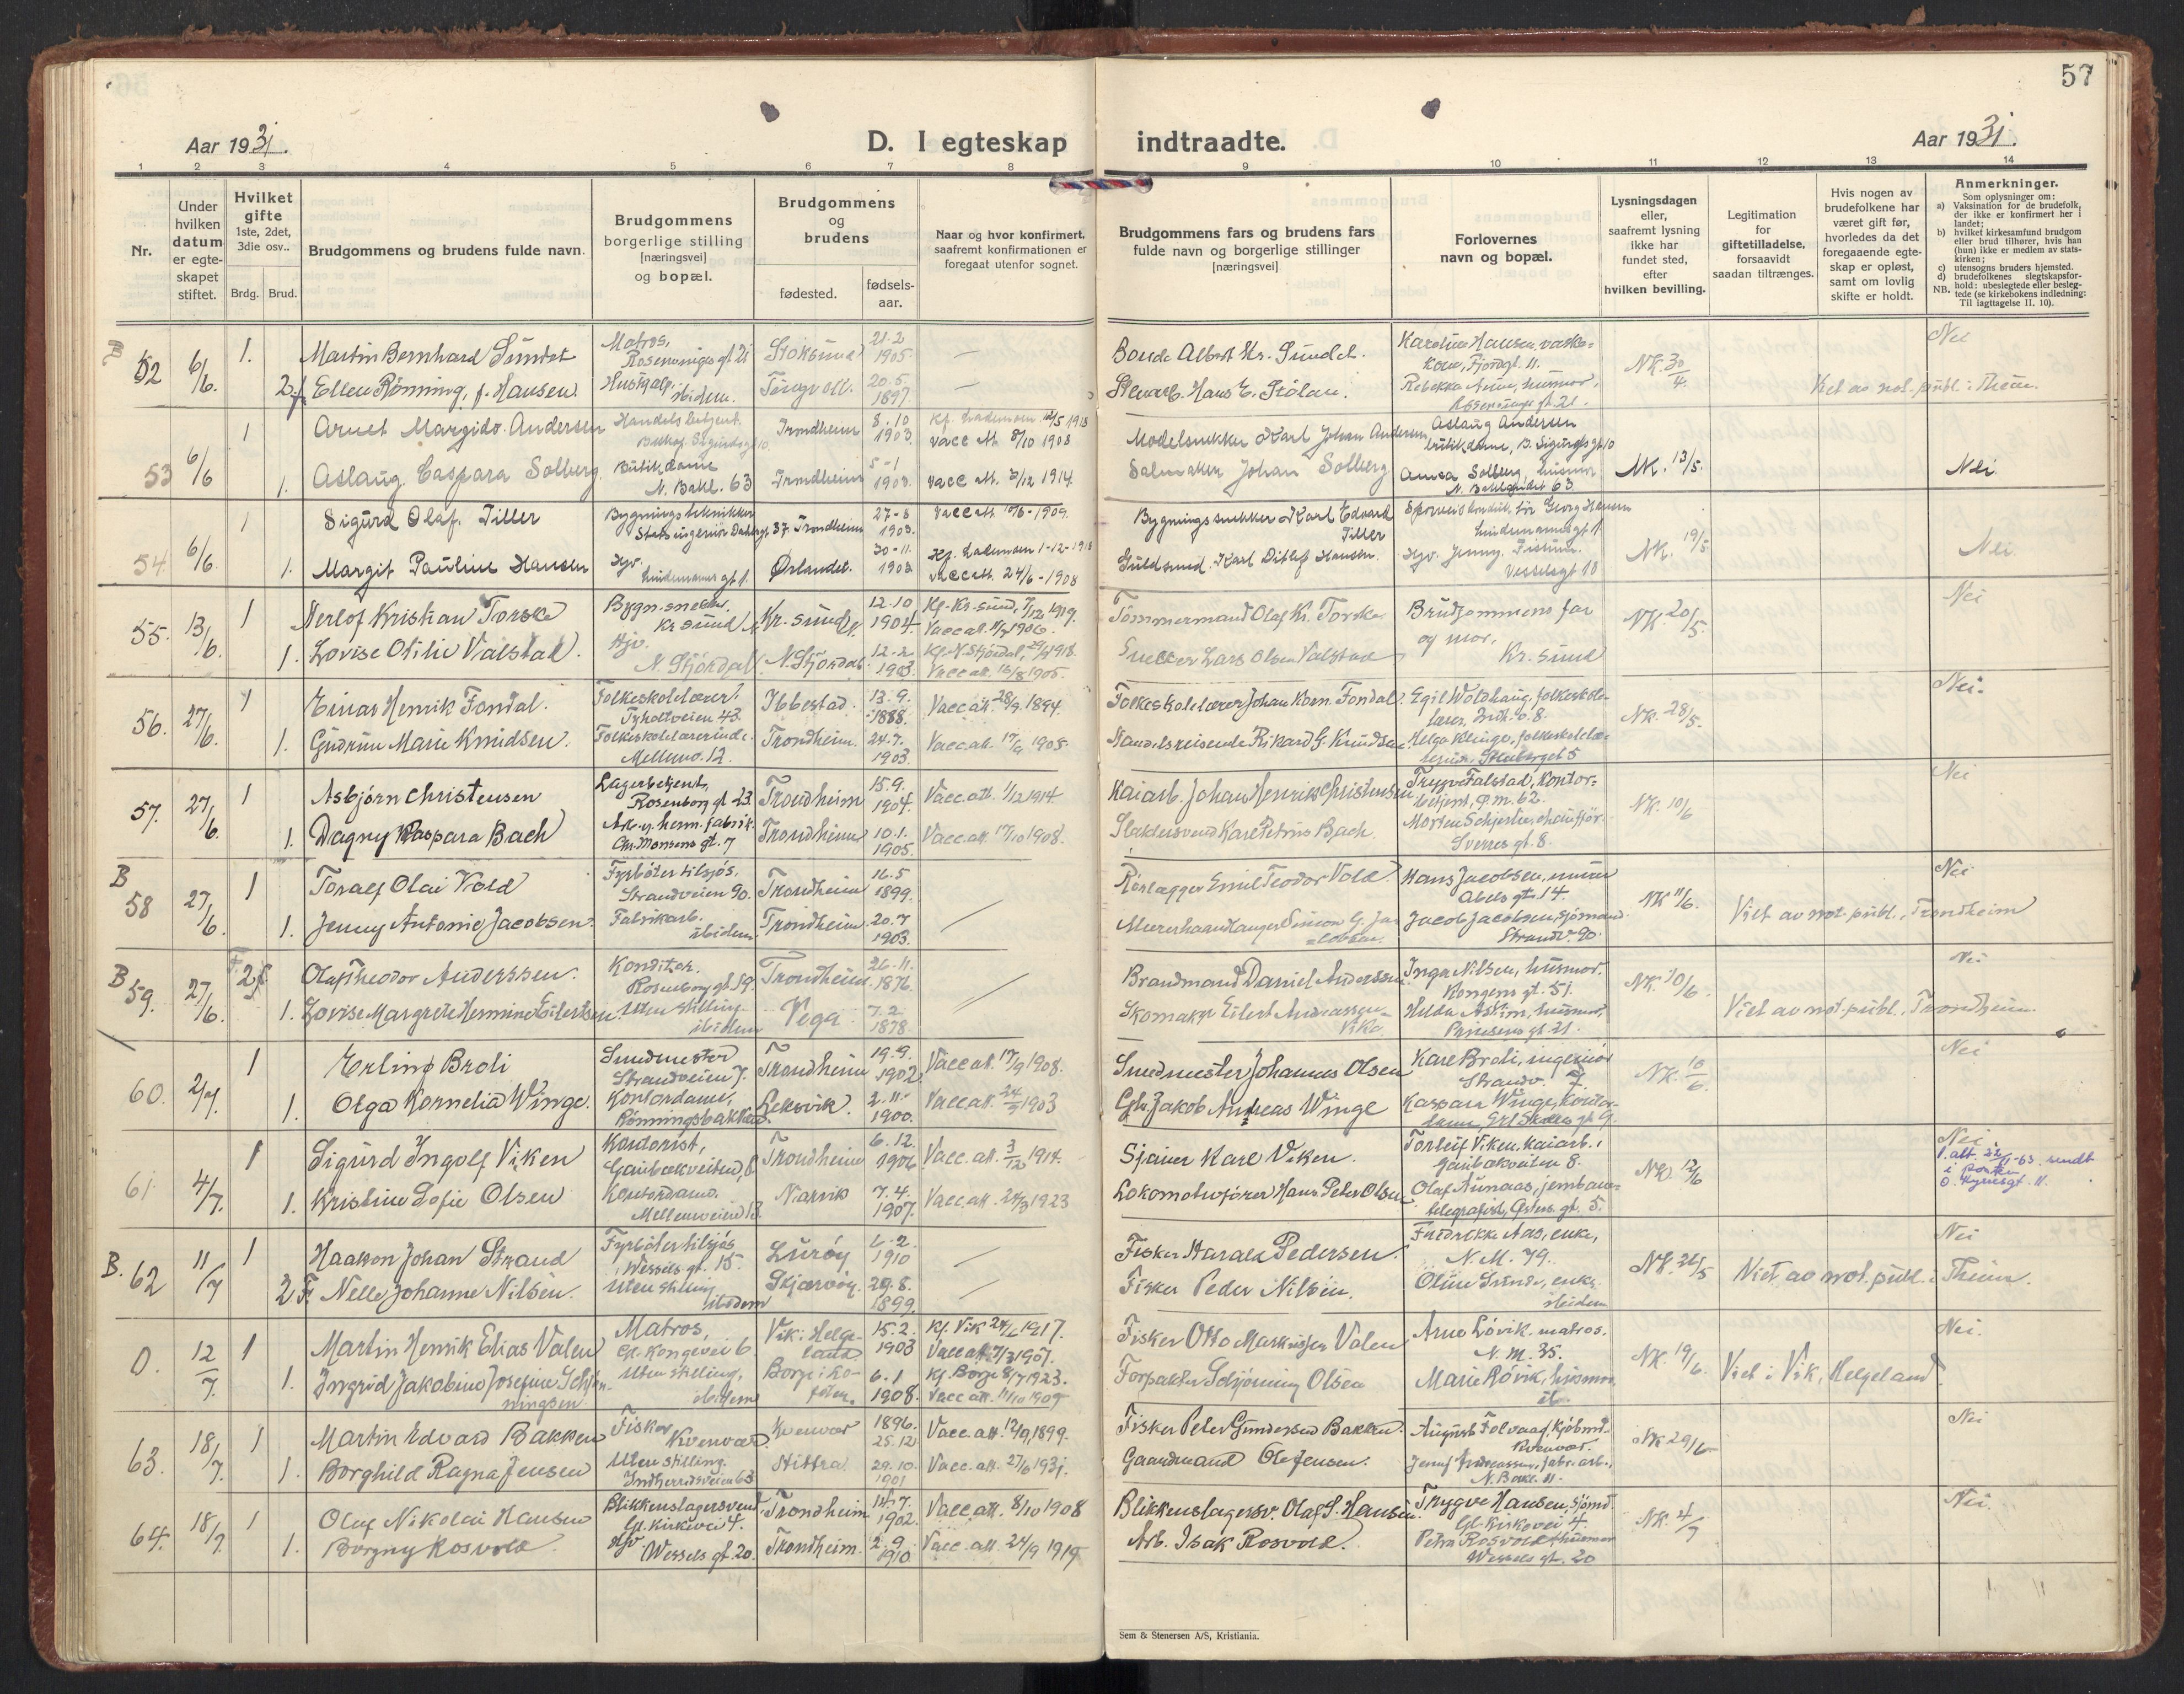 57
Aar 1931.
D. I egteskap
indtraadte.
Aar 1931.
1 2 3 4 5 6 7 8 9 10 11 12 13 14
Nr.
Under
hvilken
datum
er egte-
skapet
stiftet.
Hvilket
gifte
1ste, 2det,
3die osv..
Brdg. Brud.
Brudgommens og brudens fulde navn.
Brudgommens
borgerlige stilling
[næringsvei]
og bopæl.
Brudgommens
og
brudens
fødested.
fødsels-
aar.
Naar og hvor konfirmert,
saafremt konfirmationen er
foregaat utenfor sognet.
Brudgommens fars og brudens fars
fulde navn og borgerlige stillinger
[næringsvei]
Forlovernes
navn og bopæl.
Lysningsdagen
eller,
saafremt lysning
ikke har
fundet sted,
efter
hvilken bevilling.
Legitimation
for
giftetilladelse,
forsaavidt
saadan tiltrænges.
Hvis nogen av
brudefolkene har
været gift før,
hvorledes da det
foregaaende egte-
skap er opløst,
samt om lovlig
skifte er holdt.
Anmerkninger.
Som oplysninger om:
a) Vaksination for de brudefolk,
der ikke er konfirmert her i
landet;
b) hvilket kirkesamfund brudgom
eller brud tilhører, hvis han
(hun) ikke er medlem av stats-
kirken;
c) utensogns bruders hjemsted.
d) brudefolkenes slegtskapsfor-
hold: ubeslegtede eller besleg-
NB. tede (se kirkebokens indledning:
Til iagttagelse II. 10).
B 52 6/6. 1. Martin Bernhard Sundet Matros, Stoksund 21.2 1905. — Bonde Albert Kr. Sundet. Karoline Hansen, vaske- NK. 30/4. Nei
kone, Fjordgt. 11.
2.f. Ellen Rønning, f. Hansen. ibidem. Tingvoll. 20.5 1897 — Hans E. Stølan. Rebekka husmor.
53 6/6 1 Arnet Margido Andersen Handelsbetjent. Trondheim 8.10 1903. vacc att 8/10 1908 Modelsnekker Karl Johan Andersen Aslaug Andersen NK. 13/5. Nei
butikdame, B. Sigurdsgt 10
1. Aslaug Caspara Solberg Butikdame Trondheim 5-1 1903. vacc att. 3/12 1914. Salmaker Johan Solberg Anna Solberg, husmor
N. Bakl. 63
54 6/6. 1 Sigurd Olaf Tiller Bygningstekniker Trondheim 27-8 1903. Vacc att 10/6-1909. Bygningssnekker Karl Edvard Tiller Georg Hansen NK. 19/5 Nei
1. Margit Pauline Hansen Hjv. Ørlandet. 30-11. 1903. Vacc att. 24/6-1908 Guldsmed Karl Ditlef Hansen. Hjv. Jenny
Vesselsgt 18
55. 13/6. 1 Herlof Kristian Torske Bygn. snekker. Kr. sund Kr. sund 12.10 1904. Kf. Kr. sund, 1919. Tømmermand Olaf Kr. Torske Brudgommens far NK 20/5. Nei
og mor,
Kr. sund
1. Lovise Otilie Valstad. Hjv. N. Stjørdal N. Stjørdal 12-2 1903. Kf. N. Stjørdal, 1918. Snekker Lars Olsen Valstad
56. 27/6. 1 Einar Henrik Fondal. Folkeskolelærer. Tyholtveien 43. Ibbestad. 13.9. 1888. Vacc att. 28/9 1894. Folkeskolelærer Johan Korn. Fondal. Egil Woldhaug, folkeskole- NK. 28/5. Nei.
1. Gudrun Marie Knudsen. Folkeskolelærerinde. Mellemv. 12. Trondheim. 24.7. 1903. Vacc att. 17/9 1905. Handelsreisende Rikard G. Knudsen. Helga Klinge, folkeskolelæ-
57. 27/6. 1 Asbjørn Christensen Lagerbetjent, Rosenborg gt. 23. Trondheim 15.9. 1904. Vacc. att. 1/12 1914 Kaiarb. Johan Henrik Christensen Trygve Falstad, kontor- NK. 10/6 Nei
betjent, Ø.M. 62.
1. Dagny Kaspara Bach Arb. v. herm. fabrik. Chr. Monsens gt. 7 Trondheim 10.1. 1905. Vacc. att. 17/10 1908. Slaktersvend Karl Petrus Bach. Morten chauffør.
Sverres gt. 8.
B 58 27/6. 1 Toralf Olai Vold Fyrbøter tilsjøs, Strandveien 90. Trondheim 16.5 1899. Rørlægger Emil Teodor Vold. Hans Jacobsen, murer NK 11/6. Nei
Abels gt. 14.
1. Jenny Antonie Jacobsen. Fabrikarb. ibidem Trondheim 20.7 1903. Murerhaandlanger Simon G. Ja- Jacob Jacobsen, sjømand Viet av not. publ., Trondheim
cobsen. Strandv. 90.
B 59. 27/6. 2f Olaf Theodor Anderssen. Konditor. Rosenborg gt. 19. Trondheim 26-11. 1876. Brandmand Daniel Anderssen. Inga Nilsen, husmor. NK. 10/6. Nei
Kongens gt. 51.
1. Lovise Margrete Hermine Eilertsen. Uten stilling. ibidem Vega 7.2 1878. Skomaker Eilert Andreassen Hilda Askim, husmor, Viet av not. publ., Trondheim
Prinsens gt. 21.
60. 2/7. 1 Erling Broli Smedmester Strandveien 7. Trondheim 19.9. 1902. Vacc att. 17/9 1908. Smedmester Johannes Olsen Kåre Broli, ingeniør NK. 10/6. Nei
Strandv. 7.
1. Olga Kornelia Winge. Kontordame, Rønningsbakken Leksvik. 2.11. 1900. Vacc att. 1903 Gbr. Jakob Andreas Winge Kaspara Winge, kontor-
61 4/7. 1 Sigurd Ingolf Viken Kontorist, Trondheim 6.12. 1906 Vacc. att. 3/12 1914. Sjauer Karl Viken. Torleif Viken, kaiarb., NK. 12/6 Nei
1. Kristine Sofie Olsen Kontordame. Mellemveien 13. Narvik 7.4. 1907. Vacc att. 24/3 1923 Lokomotivfører Hans Peter Olsen Olaf Aunaas, jernbane-
telegrafist, Østers. gt. 5.
B. 62 11/7 1 Haakon Johan Strand Fyrbøter tilsjøs Wessels gt. 15. Lurøy 1910 Fisker Harald Pedersen. Fredrikke Aas, enke, NK. 26/5 Nei
N.M. 79.
2 F. Nelle Johanne Nilsen. Uten stilling ibidem Skjærvøy. 29.8. 1899. Fisker Peder Nilsen. enke, Viet av not. publ. i Theim.
ibidem
0. 12/7. 1 Martin Henrik Elias Valen Matros, Gl. Kongevei 6 Vik i Helge- 15.2. 1903 Kf. Vik 1917. Fisker Otto Markusen Valen Arne Løvik, matros. NK. 19/6. Nei.
land N.M. 35.
1. Ingrid Jakobine Josefine Schjøn- Uten stilling, ibidem 6.1 1908. Kf. Borge 8/7 1923. Forpakter Schjøning Olsen Marie Røvik, husmor Viet i Vik, Helgeland.
ningsen
63. 18/7. 1 Martin Edvard Bakken Fisker Kvenvær Kvenvær 1896. 25.12. Vacc. att. 1899. Fisker Peter Gundersen Bakken. August Folvaag, kjøbmd. NK 29/6 Nei
Kvenvær.
1. Borghild Ragna Jensen Uten stilling. Indherredsveien 63 Hittra 29.10. 1901 Vacc. att. 27/6 1931. Gaardmand Ole Jensen.
64. 18/7 1 Olaf Nikolai Hansen Blikkenslagersvend, Gl. Kirkevei 4. Trondheim 14.7. 1902. Vacc att. 8/10 1908 Blikkenslagersv. Olaf S. Hansen. Trygve Hansen, sjømd. NK. 4/7 Nei.
Gl. Kirkevei 4.
1. Borgny Rosvold Hjv Wessels gt. 20. Trondheim. 2.9. 1910 Vacc. att. 24/9 1919 Arb. Isak Rosvold. Petra Rosvold, husmor
Wessels gt. 20
Sem & Stenersen A/S, Kristiania.